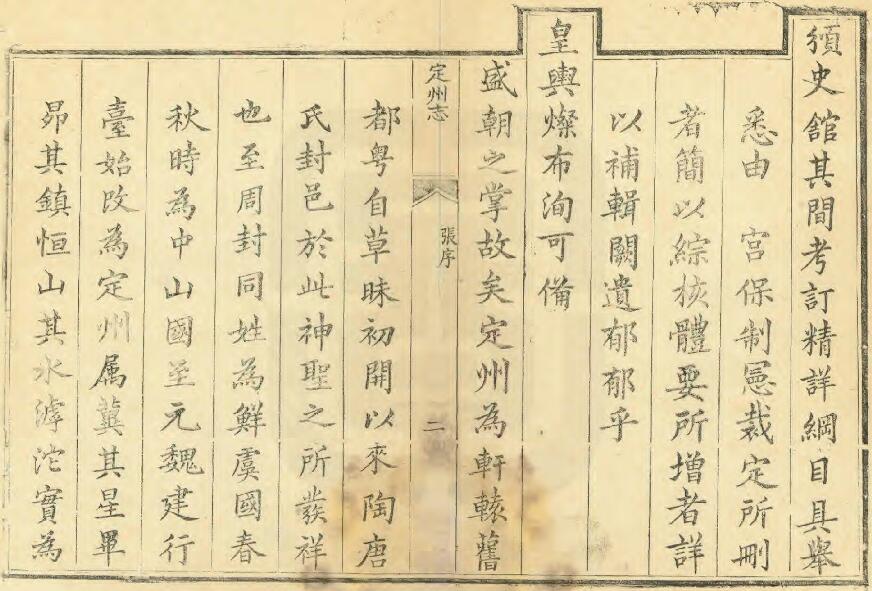 頒史館其間考訂精詳綱目具舉
悉由 宮保制憲裁定所刪
者簡以綜核體要所增者詳
以補輯闕遺郁郁乎
皇輿燦布洵可備
盛朝之掌故矣定州為軒轅舊
定州志 張序 二
都粤自草昧初開以來陶唐
氏封邑於此神聖之所發祥
也至周封同姓為鮮虞國春
秋時為中山國至元魏建行
臺始改為定州属冀其星畢
昴其鎮恒山其水滹沱實為